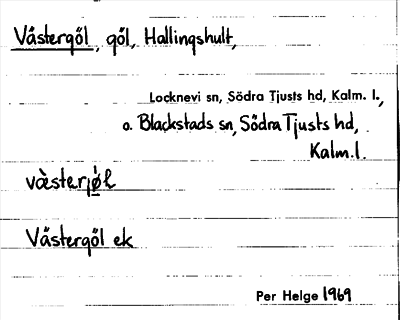 Västergöl, göl, Hallingshult,
Locknevi sn, Södra Tjusts hd, Kalm. l.,
o. Blackstads sn, Södra Tjusts hd,
Kalm. l.
Västergöl ek
Per Helge 1969